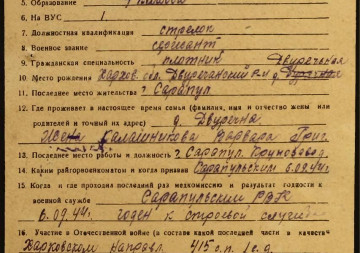 5. Образование
6. На ВУС 1.
7. Должностная квалификация стрелок
8. Военное звание сержант
9. Гражданская специальность плотник Двуречная
10. Место рождения Харьк. обл. Двуречанский р-н д.
11. Последнее место жительства г. Сарапул
12. Где проживает в настоящее время семья (фамилия, имя и отчество жены или
родителя и точный их адрес) д. Двуречна
Калашникова Варвара Григ.
13. Последнее место работы и должность г. Сарапул
14. Каким райгорвоенкоматом и когда призван Сарапульским 6.09.44г.
15. Когда и где проходил последний раз медкомиссию и результат годности к
военной службе Сарапульский РВК
6.09.44г. годен к строевой службе
16. Участие в Отечественной войне (в составе какой последней части, в качестве
Харьковском направл. 415 с.п. 1 с.д.